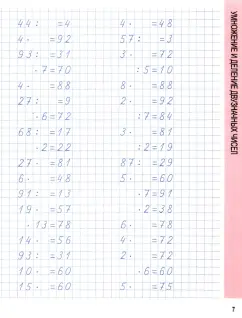 УМНОЖЕНИЕ И ДЕЛЕНИЕ ДВУЗНАЧНЫХ ЧИСЕЛ
44: =4
4· =92
93: =31
·7=70
4· =88
27: =9
·6=72
68: =17
·2=22
27· =81
6· =48
91: =13
19· =57
·13=78
14· =56
93: =31
10· =60
15· =60
4· =48
57: =3
3· =81
:5=10
8· =88
2· =92
:7=84
3· =81
:2=19
87: =29
5· =60
·7=91
·2=38
6· =78
4· =72
2· =72
·6=60
5· =75
7